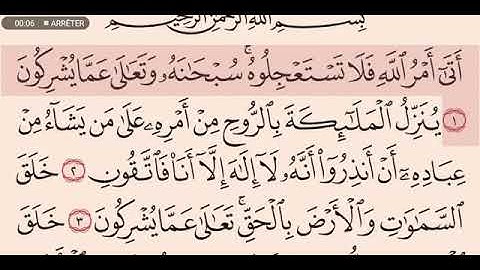 00:06 ■ ARRÊTER
بِسْمِ ٱللَّهِ ٱلرَّحْمَٰنِ ٱلرَّحِيمِ
أَتَىٰٓ أَمْرُ ٱللَّهِ فَلَا تَسْتَعْجِلُوهُ ۚ سُبْحَٰنَهُۥ وَتَعَٰلَىٰ عَمَّا يُشْرِكُونَ
١ يُنَزِّلُ ٱلْمَلَٰٓئِكَةَ بِٱلرُّوحِ مِنْ أَمْرِهِۦ عَلَىٰ مَن يَشَآءُ مِنْ
عِبَادِهِۦٓ أَنْ أَنذِرُوٓا۟ أَنَّهُۥ لَآ إِلَٰهَ إِلَّآ أَنَا۠ فَٱتَّقُونِ ٢ خَلَقَ
ٱلسَّمَٰوَٰتِ وَٱلْأَرْضَ بِٱلْحَقِّ ۚ تَعَٰلَىٰ عَمَّا يُشْرِكُونَ ٣ خَلَقَ